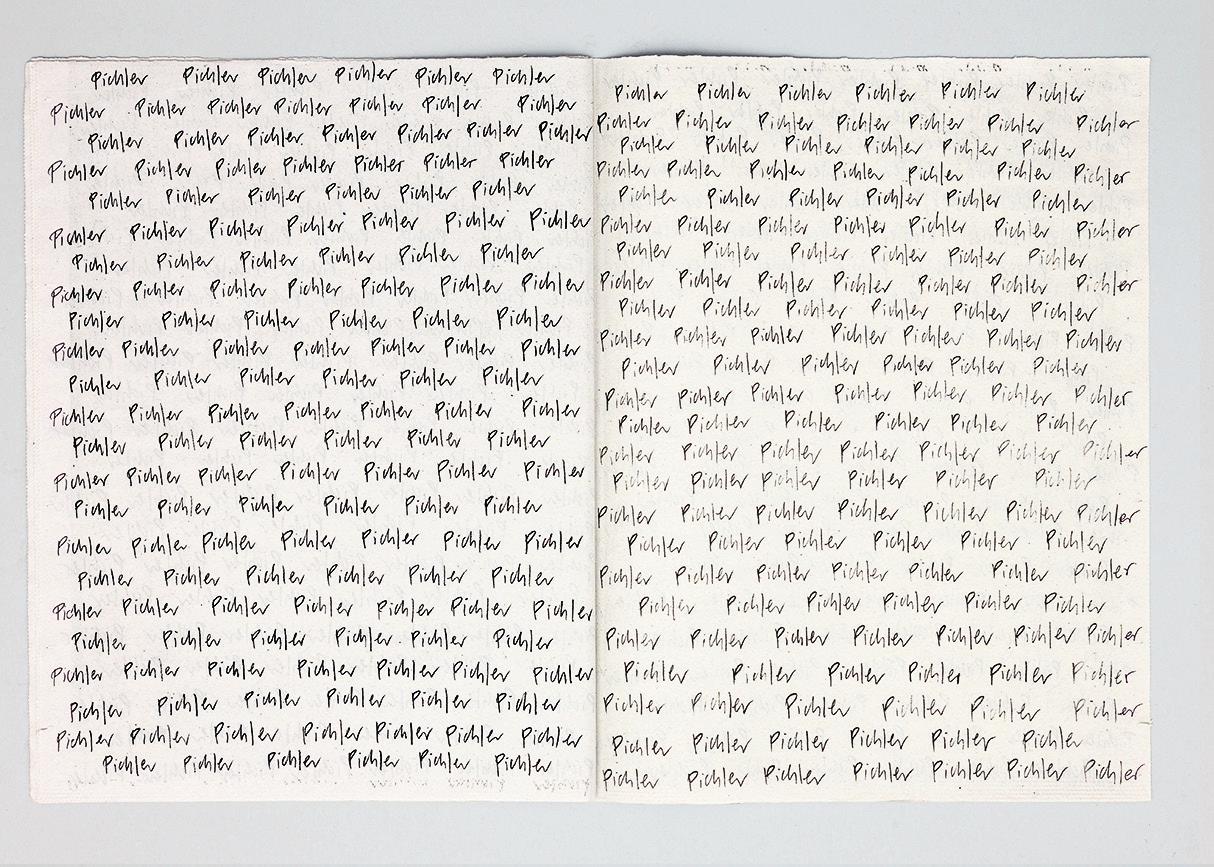 Pichler Pichler Pichler Pichler Pichler Pichler
Pichler Pichler Pichler Pichler Pichler Pichler Pichler
Pichler Pichler Pichler Pichler Pichler Pichler Pichler
Pichler Pichler Pichler Pichler Pichler Pichler Pichler
Pichler Pichler Pichler Pichler Pichler Pichler
Pichler Pichler Pichler Pichler Pichler Pichler Pichler
Pichler Pichler Pichler Pichler Pichler Pichler
Pichler Pichler Pichler Pichler Pichler Pichler Pichler
Pichler Pichler Pichler Pichler Pichler Pichler
Pichler Pichler Pichler Pichler Pichler Pichler Pichler
Pichler Pichler Pichler Pichler Pichler Pichler
Pichler Pichler Pichler Pichler Pichler Pichler Pichler
Pichler Pichler Pichler Pichler Pichler Pichler
Pichler Pichler Pichler Pichler Pichler Pichler Pichler
Pichler Pichler Pichler Pichler Pichler Pichler
Pichler Pichler Pichler Pichler Pichler Pichler Pichler
Pichler Pichler Pichler Pichler Pichler Pichler
Pichler Pichler Pichler Pichler Pichler Pichler Pichler
Pichler Pichler Pichler Pichler Pichler Pichler
Pichler Pichler Pichler Pichler Pichler Pichler Pichler
Pichler Pichler Pichler Pichler Pichler Pichler
Pichler Pichler Pichler Pichler Pichler Pichler Pichler
Pichler Pichler Pichler Pichler Pichler Pichler
Pichler Pichler Pichler Pichler Pichler Pichler
Pichler Pichler Pichler Pichler Pichler Pichler Pichler
Pichler Pichler Pichler Pichler Pichler Pichler
Pichler Pichler Pichler Pichler Pichler Pichler Pichler
Pichler Pichler Pichler Pichler Pichler Pichler
Pichler Pichler Pichler Pichler Pichler Pichler Pichler
Pichler Pichler Pichler Pichler Pichler Pichler
Pichler Pichler Pichler Pichler Pichler Pichler Pichler
Pichler Pichler Pichler Pichler Pichler Pichler
Pichler Pichler Pichler Pichler Pichler Pichler Pichler
Pichler Pichler Pichler Pichler Pichler Pichler
Pichler Pichler Pichler Pichler Pichler Pichler Pichler
Pichler Pichler Pichler Pichler Pichler Pichler
Pichler Pichler Pichler Pichler Pichler Pichler Pichler
Pichler Pichler Pichler Pichler Pichler Pichler
Pichler Pichler Pichler Pichler Pichler Pichler Pichler
Pichler Pichler Pichler Pichler Pichler Pichler
Pichler Pichler Pichler Pichler Pichler Pichler Pichler
Pichler Pichler Pichler Pichler Pichler Pichler
Pichler Pichler Pichler Pichler Pichler Pichler Pichler
Pichler Pichler Pichler Pichler Pichler Pichler
Pichler Pichler Pichler Pichler Pichler Pichler
Pichler Pichler Pichler Pichler Pichler Pichler
Pichler Pichler Pichler Pichler Pichler Pichler Pichler